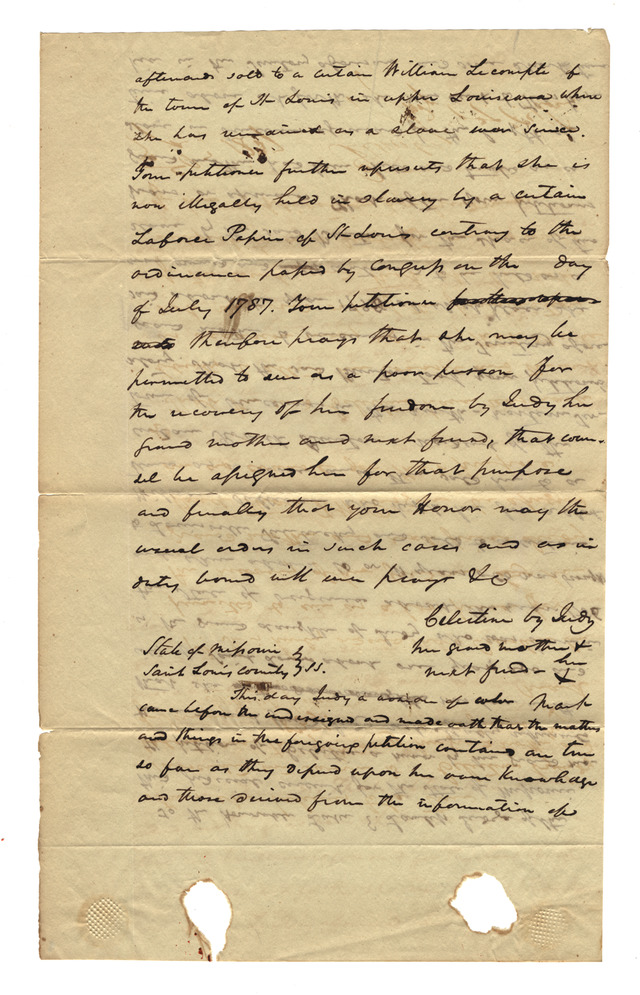 afterwards sold to a certain William Lecompte of
the town of St Louis in upper Louisiana where
she has remained as a slave ever since.
Your petitioner further represents that she is
now illegally held in slavery by a certain
Laforce Papin of St Louis contrary to the
ordinance passed by Congress on the day
of July 1787. Your petitioner
therefore prays that she may be
permitted to sue as a poor person for
the recovery of her freedom by Judy her
grand mother and next friend, that coun-
sel be assigned her for that purpose
and finally that your Honor may the
usual orders in such cases and as in
duty bound will ever pray &c
Celestine by Judy
her grand mother &
next friend - her
State of Missouri }
Saint Louis County } ss.
mark
This day Judy a woman of color
came before the undersigned and made oath that the matters
and things in the foregoing petition contained are true
so far as they depend upon her own knowledge
and those derived from the information of